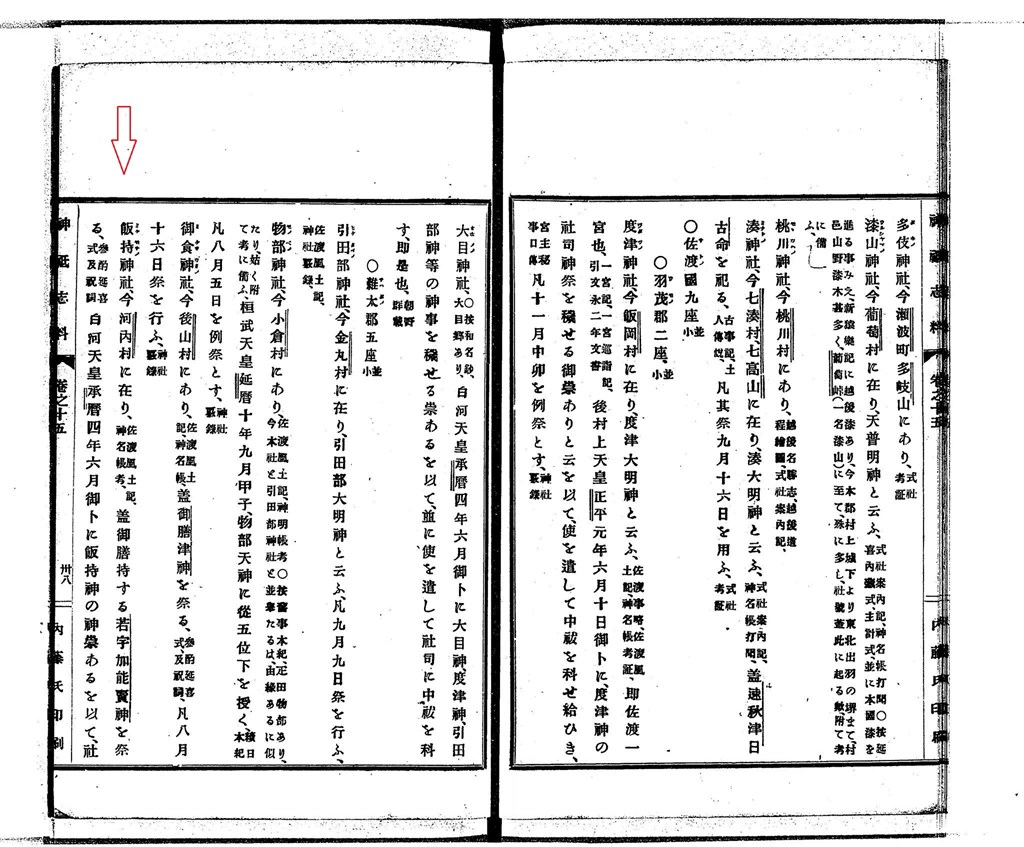 多伎神社、今瀬波町多岐山にあり、式社考証
漆山神社、今葡萄村に在り、天普明神と云ふ、式社案內記、神名帳打聞〇按延喜內藏式、主計式、並に本國漆を
進る事み之、新猿樂記に越後漆あり、今本郡村上城下より東北出羽の堺まて、村邑山野漆木甚多く、葡萄峠(一名漆山)に至て、殊に多し、社號蓋此に起る歟附て考
に備ふ、
桃川神社、今桃川村にあり、越後名勝志、越後道程繪圖、式社案內記、
湊神社、今七湊村、七高山に在り、湊大明神と云ふ、式社案內記、神名帳打聞、蓋速秋津日
古命を祀る、古事記、土人傳說、凡其祭九月十六日を用ふ、式社考証
〇佐渡國九座並小
〇羽茂郡二座、並小
度津神社、今飯岡村に在り、度津大明神と云ふ、佐渡事略、佐渡風土記、神名帳考証、即佐渡一
宮也、一宮記、一宮巡詣記、引文永二年文書後村上天皇正平元年六月十日御卜に、度津神の
社司神祭を穢せる御祟ありと云を以て、使を遣して中祓を科せ給ひき、
宮主秘事口傳凡十一月中卯を例祭とす、神社覈錄
大目神社、〇按和名鈔、大目鄕あり、白河天皇承曆四年六月御卜に大目神、度津神、引田
部神等の神事を穢せる祟あるを以て、並に使を遣して社司に中祓を科
す、即是也、朝野群載
〇雜太郡五座、並小
引田部神社、今金丸村に在り、引田部大明神と云ふ、凡九月九日祭を行ふ、
佐渡風土記、神社覈錄、
物部神社、今小倉村にあり、佐渡風土記、神明帳考〇按舊事本紀、疋田物部あり、今本社と引田部神社と並擧たるは、由緣あるに似
たり、姑く附て考に備ふ、桓武天皇延曆十年九月甲子、物部天神に從五位下を授く、續日本紀
凡八月五日を例祭とす、神社覈錄
御食神社、今後山村にあり、佐渡風土記、神名帳、蓋御膳津神を祭る、參酌延喜式、及祝詞凡八月
十六日祭を行ふ、神社覈錄
飯持神社、今河內村に在り、佐渡風土記、神名帳考、蓋御膳持する若宇加能賣神を祭
る、參酌延喜式及祝詞白河天皇承曆四年六月御卜に飯持神の神祟あるを以て、社
神祇志料
卷之十五
卅八
內藤氏印刷